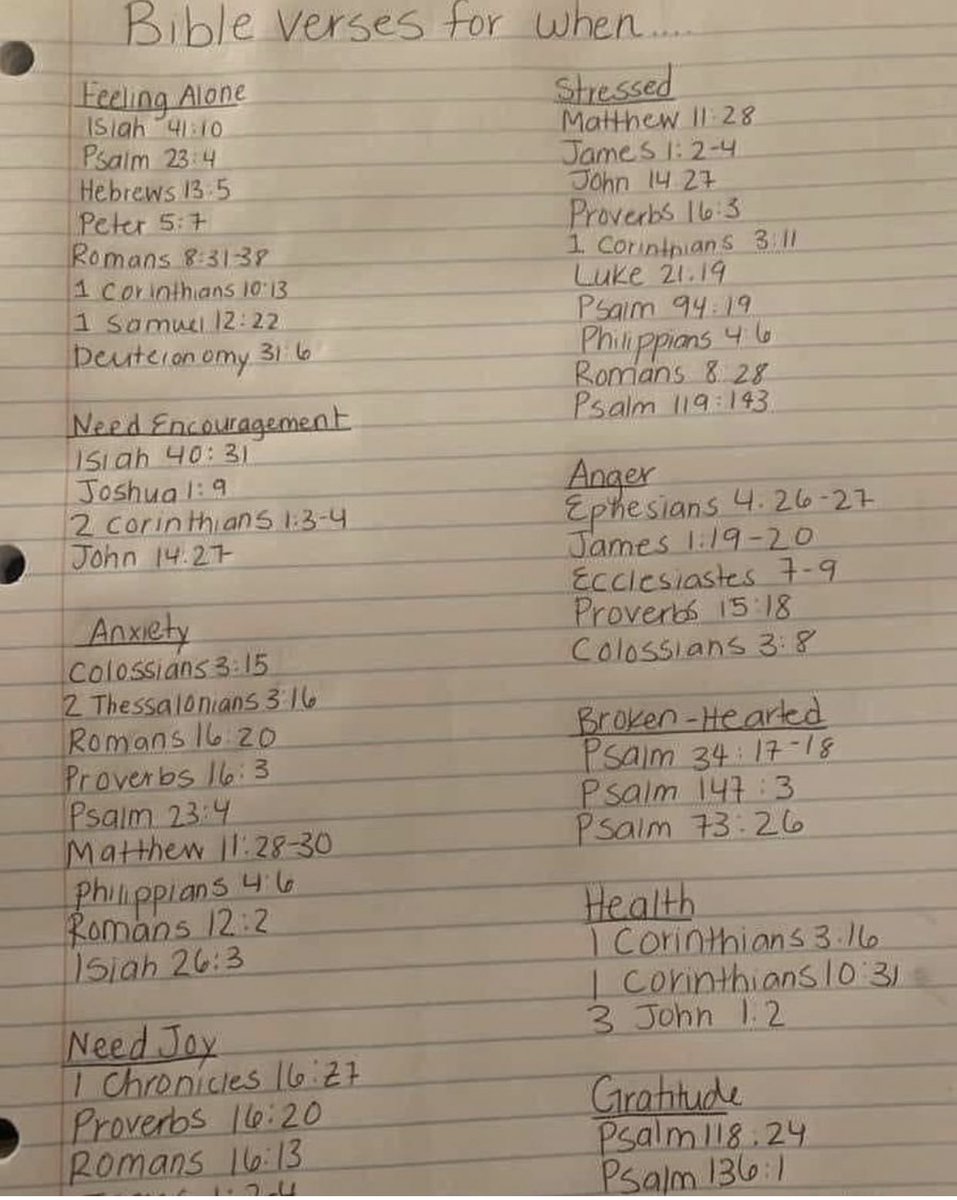 Bible verses for when....
Feeling Alone
Isiah 41:10
Psalm 23:4
Hebrews 13:5
Peter 5:7
Romans 8:31-38
1 Corinthians 10:13
1 Samuel 12:22
Deuteronomy 31:6
Need Encouragement
Isiah 40:31
Joshua 1:9
2 Corinthians 1:3-4
John 14:27
Anxiety
Colossians 3:15
2 Thessalonians 3:16
Romans 16:20
Proverbs 16:3
Psalm 23:4
Matthew 11:28-30
Philippians 4:6
Romans 12:2
Isiah 26:3
Need Joy
1 Chronicles 16:27
Proverbs 16:20
Romans 16:13
1:2-4
Stressed
Matthew 11:28
James 1:2-4
John 14 27
Proverbs 16:3
1 Corinthians 3:11
Luke 21.19
Psalm 94:19
Philippians 4 6
Romans 8 28
Psalm 119:143
Anger
Ephesians 4.26-27
James 1:19-20
Ecclesiastes 7-9
Proverbs 15:18
Colossians 3:8
Broken-Hearted
Psalm 34:17-18
Psalm 147:3
Psalm 73:26
Health
1 Corinthians 3.16
1 Corinthians 10:31
3 John 1:2
Gratitude
Psalm 118.24
Psalm 136:1